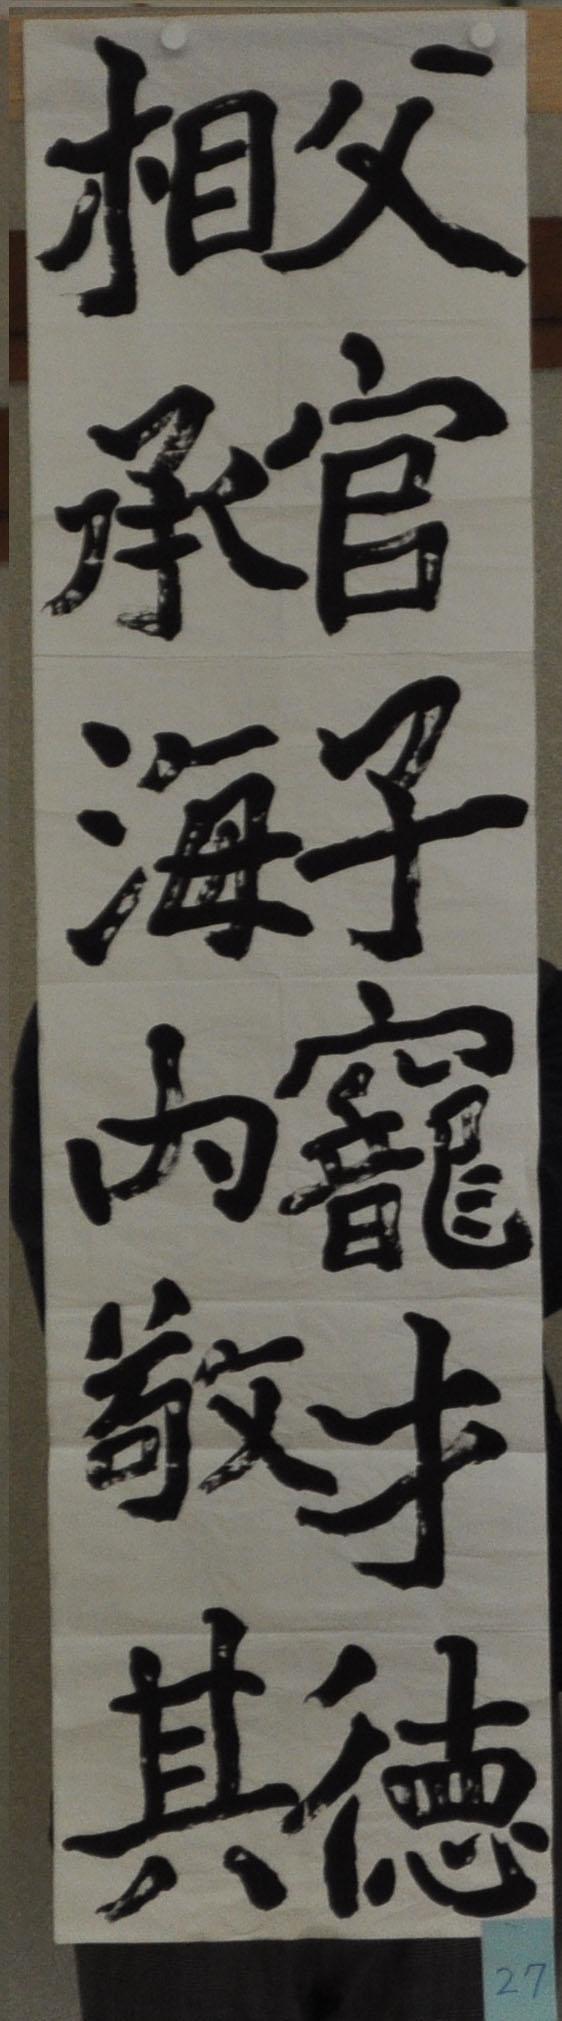 父官子寵才徳
相承海内敬其
27